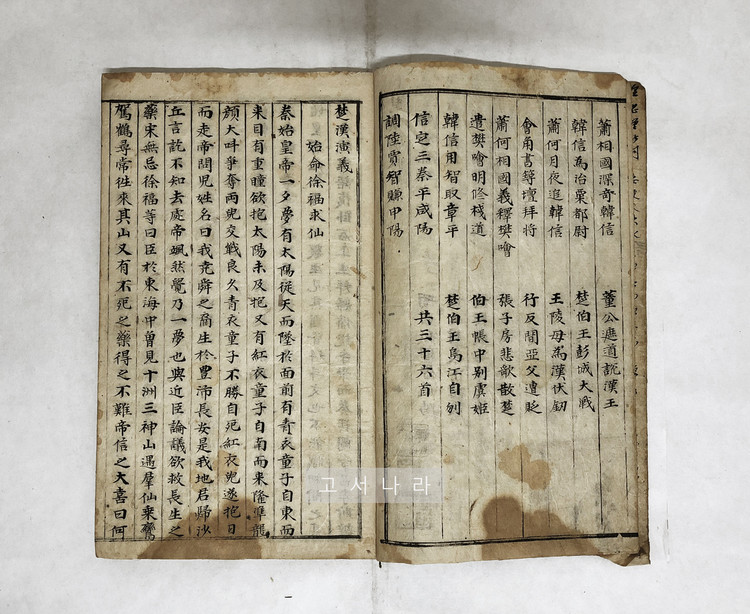 蕭相國深奇韓信
韓信為治粟都尉
蕭何月夜追韓信
會角書築壇拜將
蕭何相國義釋樊噲
遣樊噲明修棧道
韓信用智取章平
信定三秦平咸陽
調陸賈智賺申陽
董公遮道說漢王
楚伯王彭城大戰
王陵母為漢伏劒
行反間亞父遺貶
張子房悲歌散楚
伯王帳中別虞姬
楚伯王烏江自刎
共三十六首
楚漢演義
始命徐福求仙
秦始皇帝一夕夢有太陽從天而墜於面前有青衣童子自東而
来目有重瞳欲抱太陽未及抱又有紅衣童子自南而来隆準龍
顔大呌爭奪兩兒交戰良久青衣童子不勝自死紅衣兒遂抱日
而走帝問兒姓名曰我堯舜之裔生於豊沛長安是我地后歸沙
丘言訖不知去處帝颯然覺乃一夢也與近臣論議欲救長生之
藥宋無忌徐福等曰臣於東海中曽見十洲三神山遇羣仙乘鸞
駕鶴尋常徃來其山又有不死之藥得之不難帝信之大喜曰何
고서나라